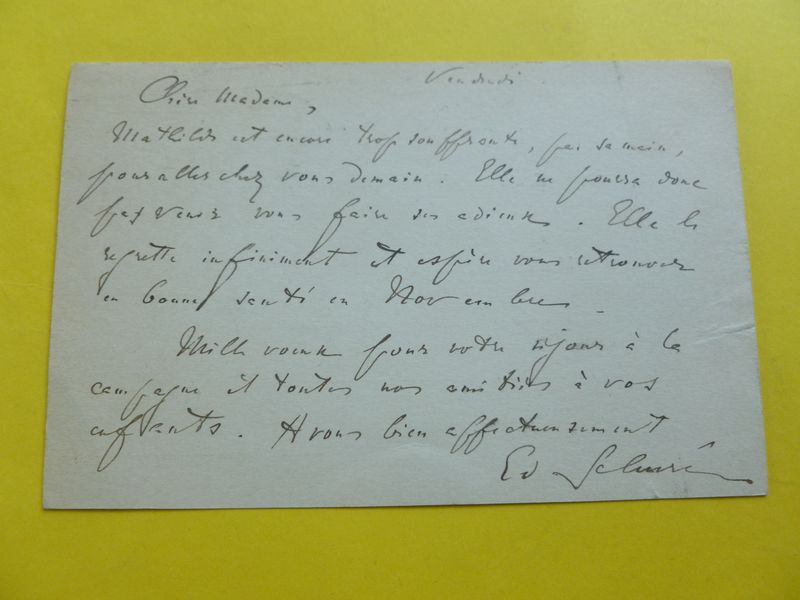 Vendredi
Chère Madame,
Mathilde est encore trop souffrante, par sa main,
pour aller chez vous demain. Elle ne pourra donc
pas venir vous faire ses adieux. Elle le
regrette infiniment et espère vous retrouver
en bonne santé en Novembre.
Mille voeux pour votre séjour à la
campagne et toutes nos amitiés à vos
enfants. A vous bien affectueusement
Ed Schuré